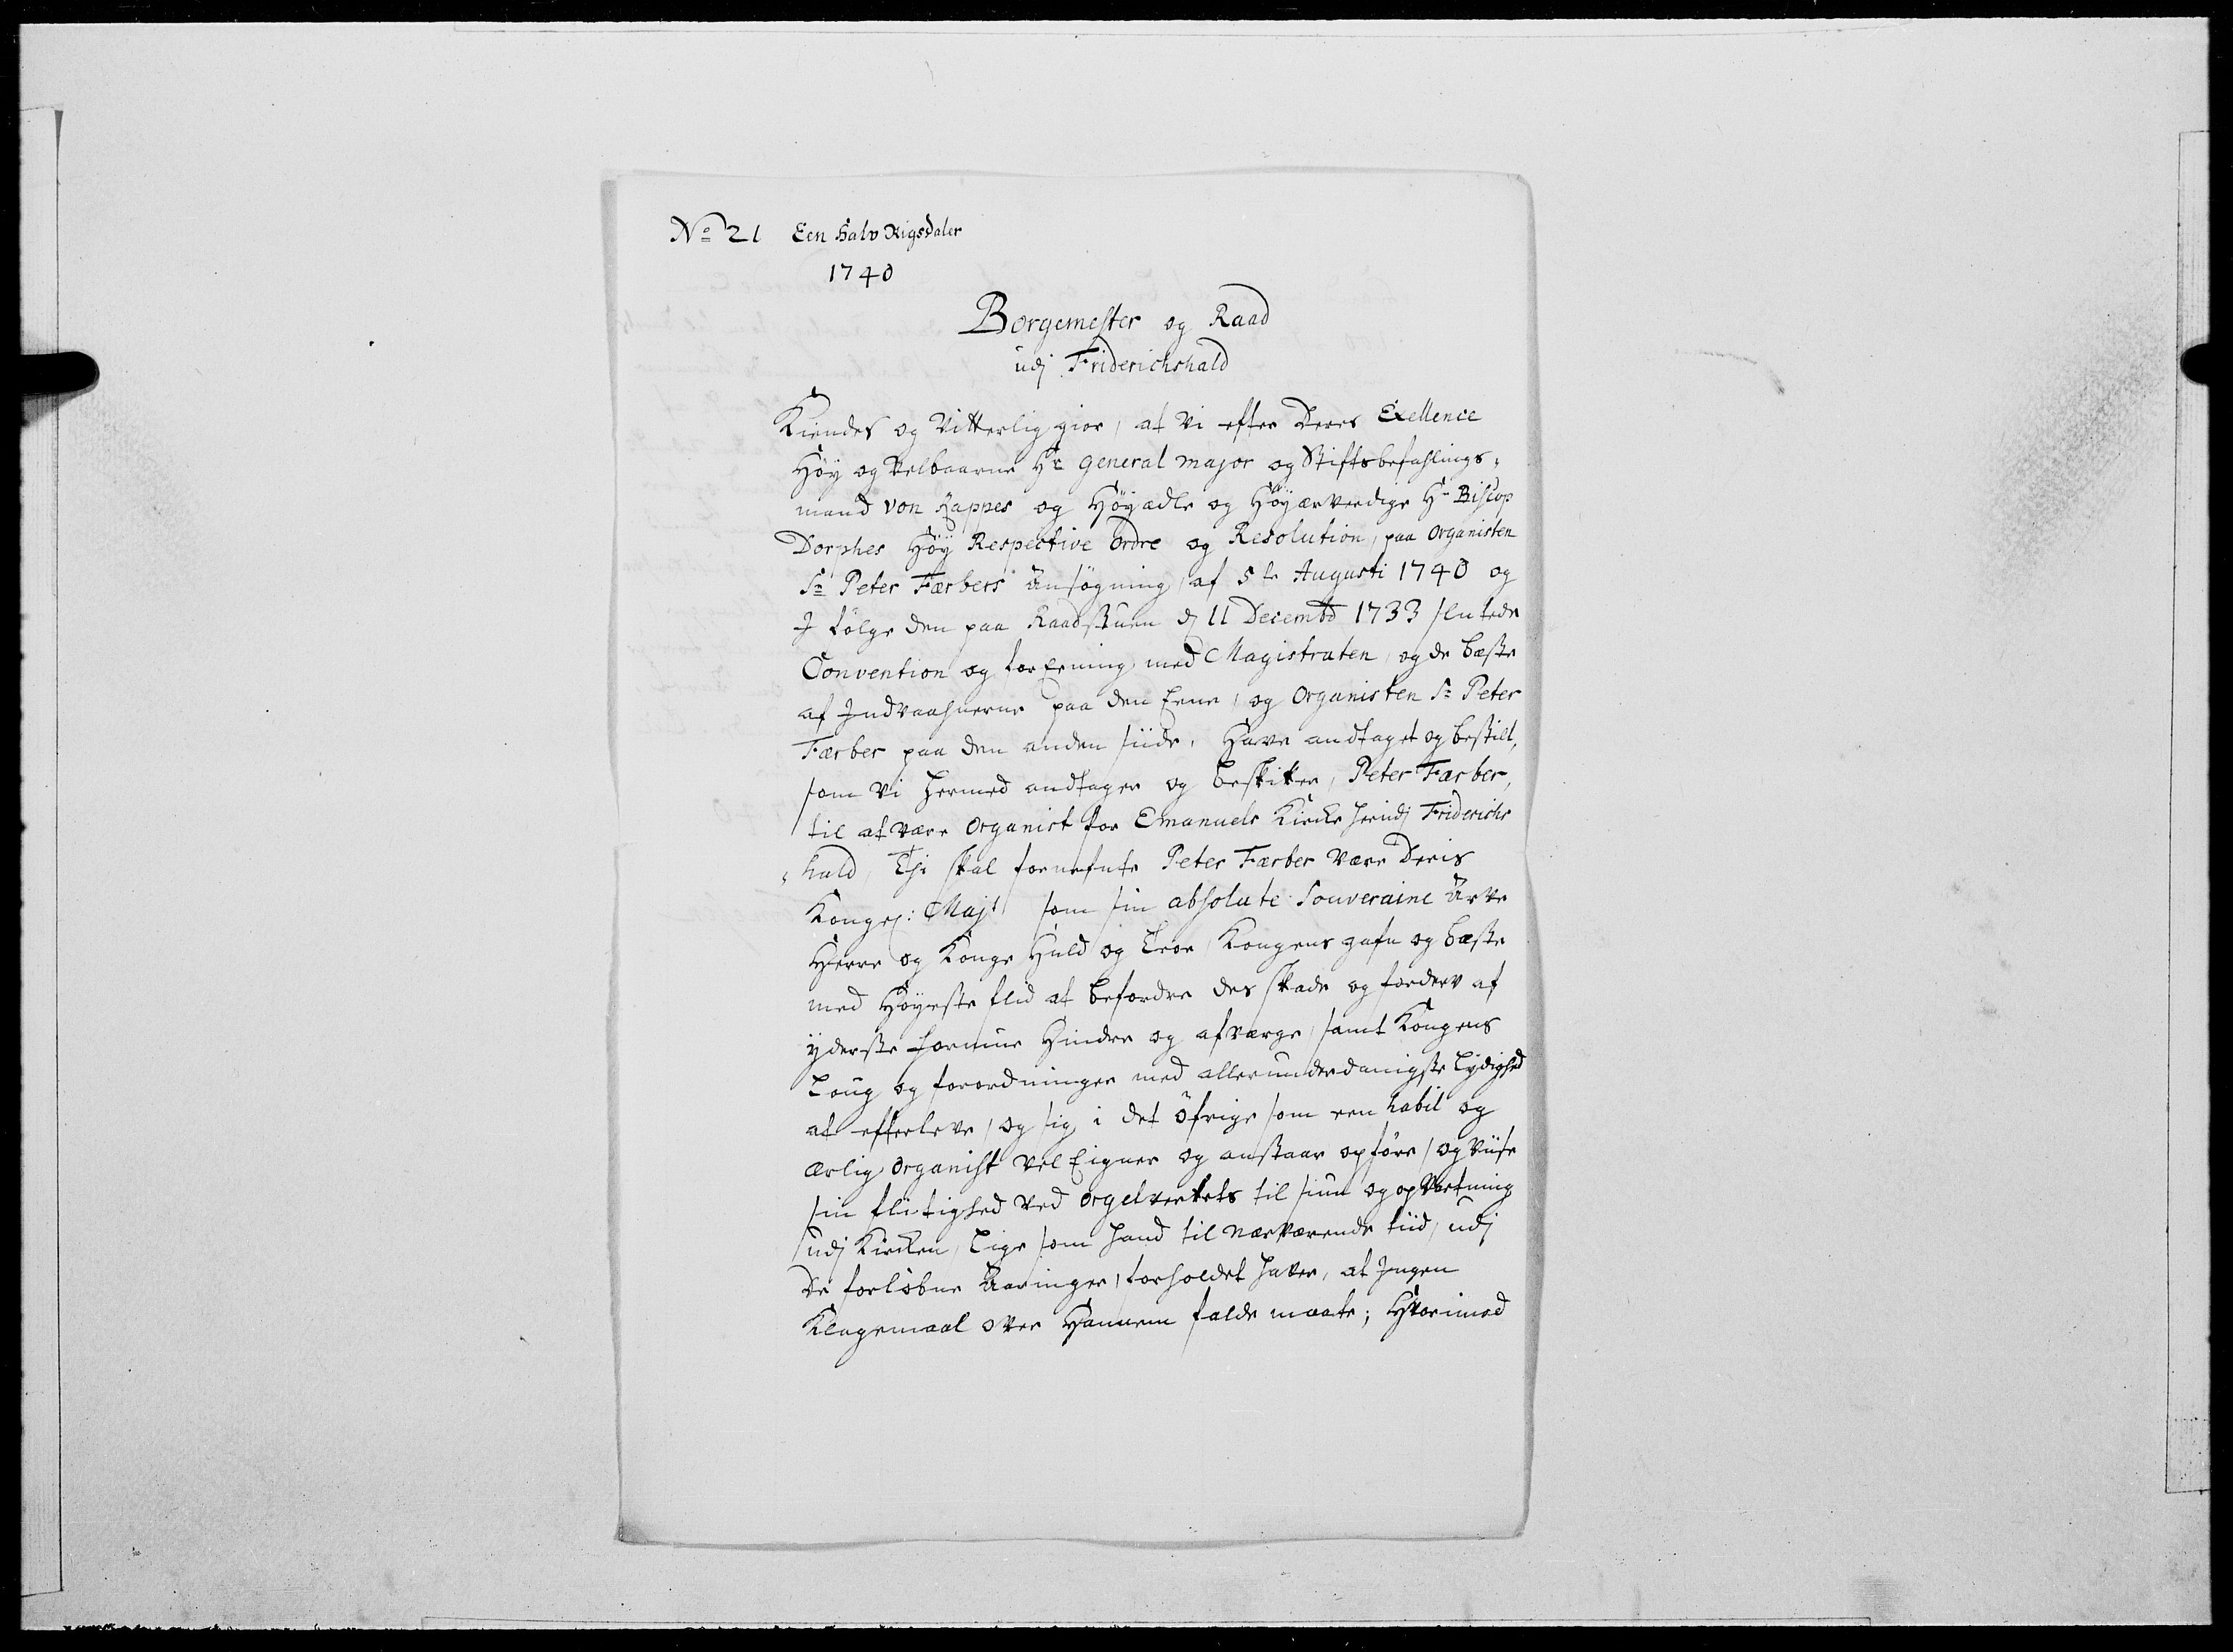 No 21 Een Halv Rigsdaler
1740
Borgemester og Raad
udj Friderichshald
Kiendes og Vitterlig giør, at Vi efter Deres Exellence
Høy og Velbaarne Hr General Major og Stiftsbefahlings-
mand von Rappes og Høyædle og Høyærværdige Hr Biscop
Dorphes Høy Respective Ordre og Resolution, paa Organisten
Sr Peter Færbers Ansøgning af 5te Augusti 1740 og
J følge den paa Raadstuen d 11 Decembr 1733 sluttede
Convention og forEening med Magistraten, og de bæste
af Indvaahnerne paa den Eene, og Organisten Sr Peter
Færber paa den anden siide, Have andtaget og bestilt,
som Vi hermed andtager og beskikker, Peter Færber,
til at være Organist for Emanuels Kircke herudj Friderichs
hald, Thi skal fornefnte Peter Færber være Deris
Kongel: Majt som sin absolute Souveraine Arve
Herre og Konge Huld og Troe, Kongens gafn og bæste
med Høyeste flid at befordre des skade og forderv af
yderste formue Hindre og afværge, samt Kongens
Loug og forordninger med allerunderdanigste Lydighed
at efterleve, og sig i det øfrige som een habil og
ærlig Organist vel Eigner og anstaar opføre, og viise
sin flittighed ved Orgelverkets til siun og opvartning
udj Kircken, Lige som hand til nærværende tiid, udj
De forløbne Aaringer, forholdet haver, at Jngen
Klagemaal over Hannem falde maatte; Hvorimod